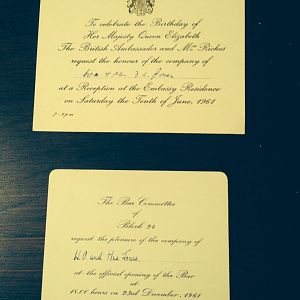 To celebrate the Birthday of
Her Majesty Queen Elizabeth
The British Ambassador and Mrs Riches
request the honour of the company of
Mr & Mrs Jones
at a Reception at the Embassy Residence
on Saturday the Tenth of June, 1961
The Bar Committee
of
Block 24
request the pleasure of the company of
W.O and Mrs Jones
at the official opening of the Bar
at
18.00 hours on 23rd December, 1961